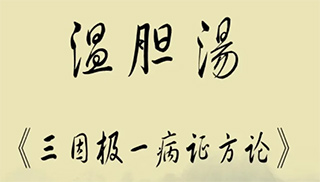 温胆湯
《三因极一病证方论》